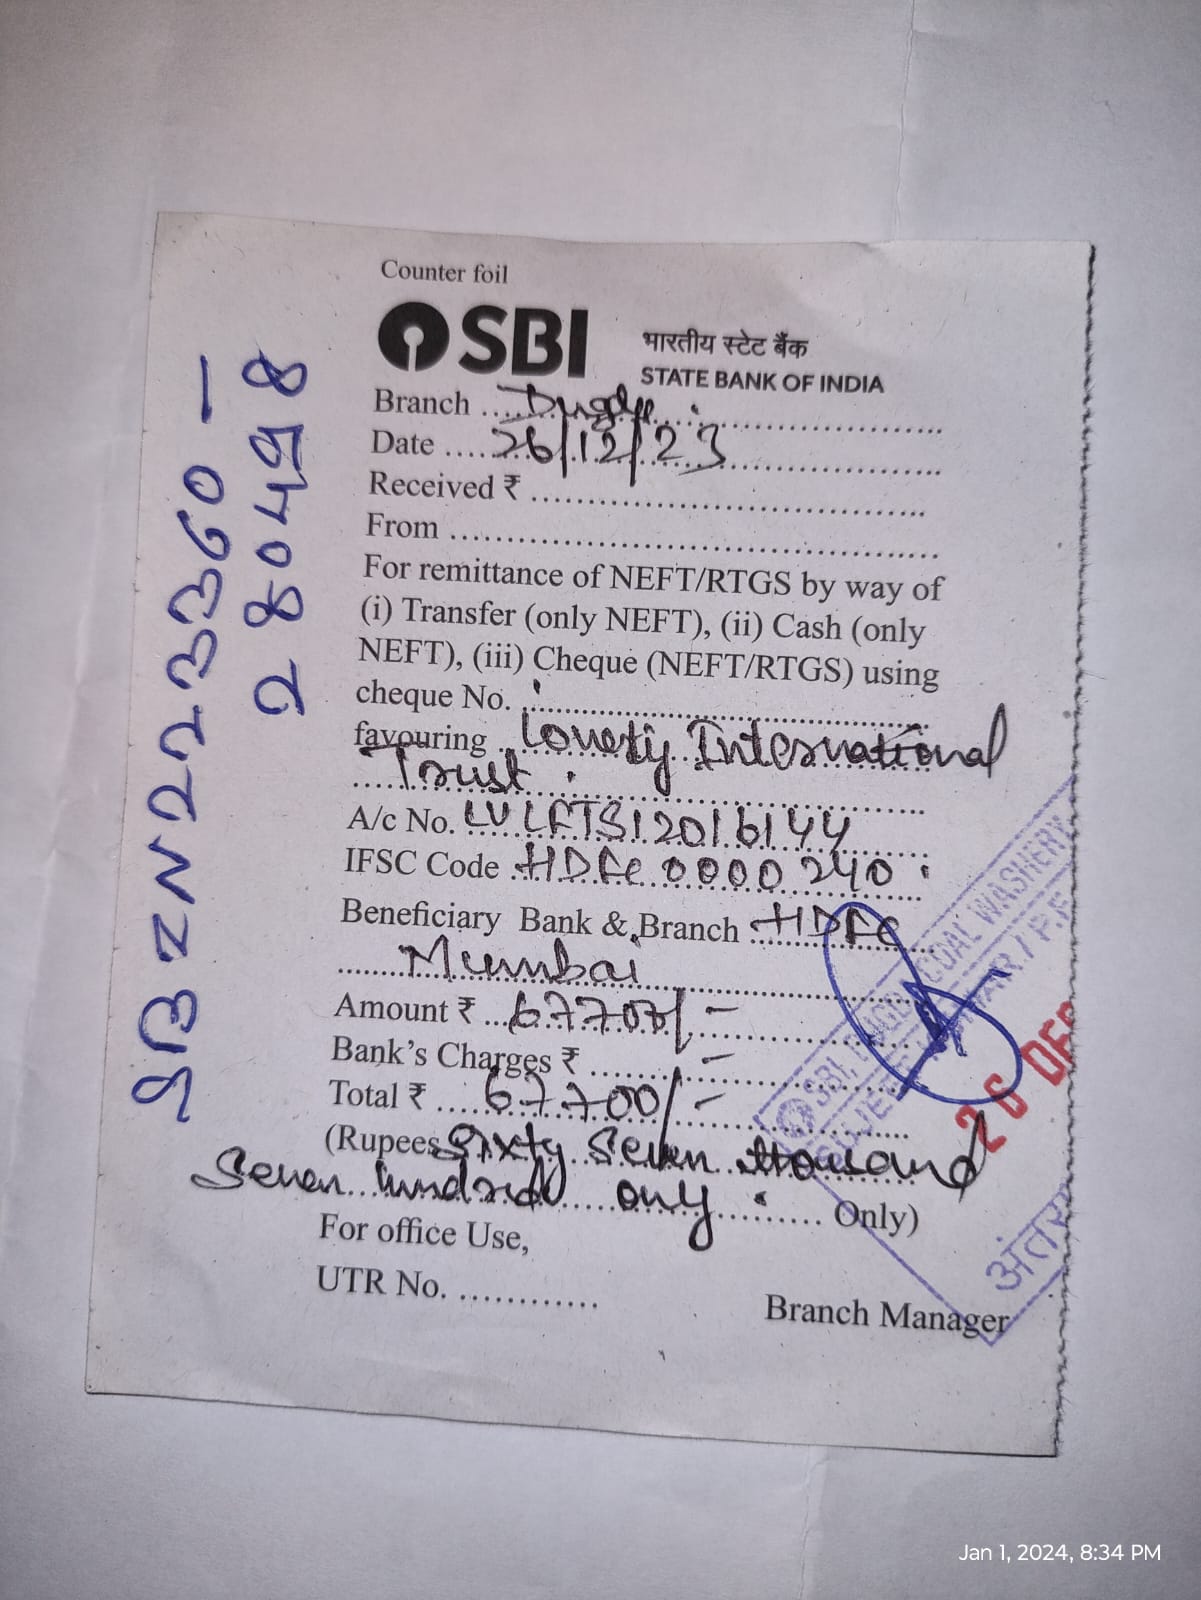 Counter foil
SBI
भारतीय स्टेट बैंक
STATE BANK OF INDIA
Branch ....................
Date ....26/12/23....................
Received ₹ ....................
From ....................
For remittance of NEFT/RTGS by way of
(i) Transfer (only NEFT), (ii) Cash (only
NEFT), (iii) Cheque (NEFT/RTGS) using
cheque No. ....................
favouring .... International
Trust ....................
A/c No. LVLFTS12016144
IFSC Code HDFC0000240
Beneficiary Bank & Branch HDFC
Mumbai
Amount ₹ ...67700/-
Bank's Charges ₹ .......... -
Total ₹ ....67700/-
(Rupees Sixty Seven thousand
Seven hundred only .......... Only)
For office Use,
UTR No. ............
Branch Manager
SBIN223360-
280498
COAL WASHERY
26 DEC